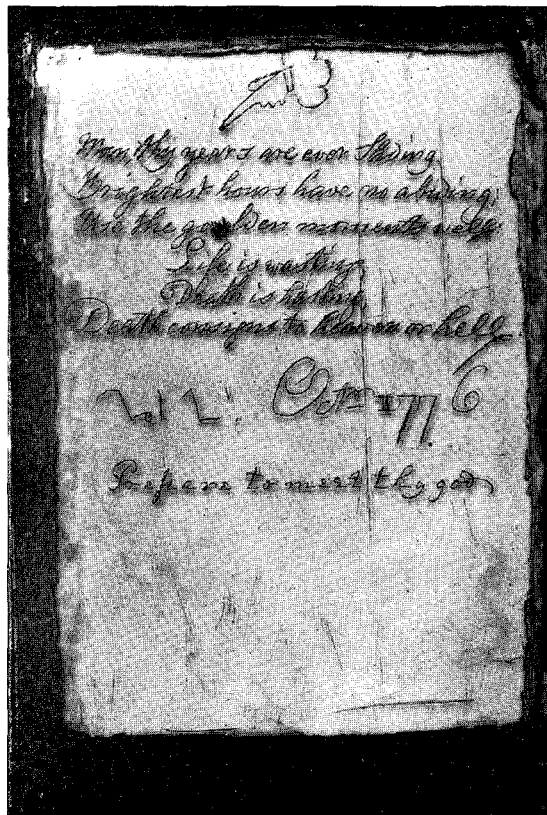 Man thy years are ever Sliding
Brightest hours have no abiding;
Use the goulden moments well
Life is wasting
Death is hasting
Death consigns to heaven or hell
Octbr 1776
Prepare to meet thy god